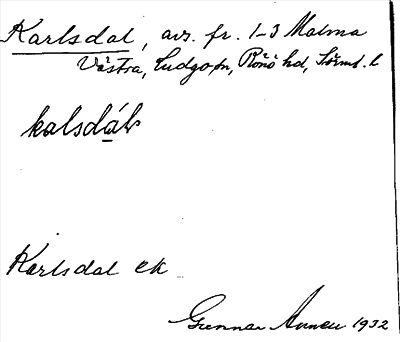 Karlsdal, avs. fr. 1-3 Malma
Västra, Ludgo sn, Rönö hd, Södml. l
kalsdál
Karlsdal ek
Gunnar
1932